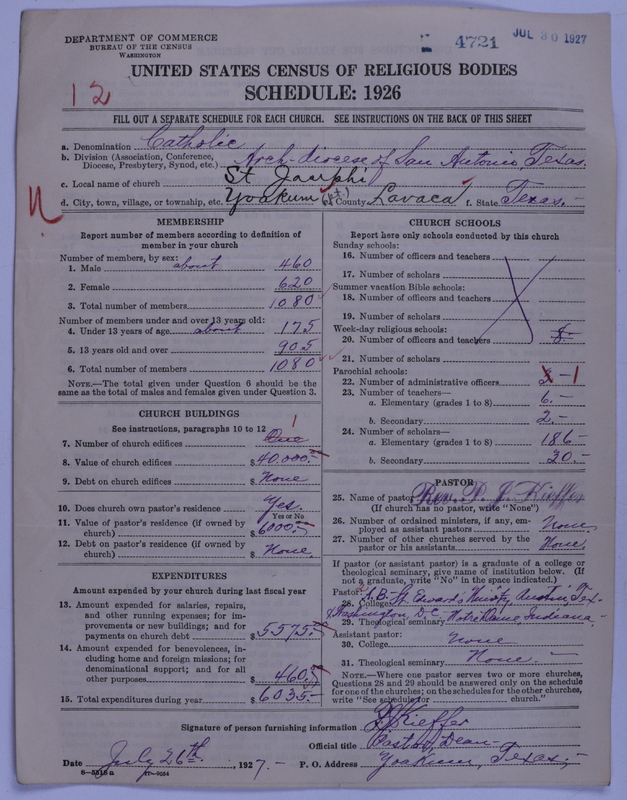 DEPARTMENT OF COMMERCE
BUREAU OF THE CENSUS
WASHINGTON
4721
JUL 30 1927
UNITED STATES CENSUS OF RELIGIOUS BODIES
12
SCHEDULE: 1926
FILL OUT A SEPARATE SCHEDULE FOR EACH CHURCH. SEE INSTRUCTIONS ON THE BACK OF THIS SHEET
a. Denomination Catholic
b. Division (Association, Conference, Diocese, Presbytery, Synod, etc.) Arch-diocese of San Antonio, Texas.
c. Local name of church St Joseph
d. City, town, village, or township, etc. Yoakum (pt.) e. County Lavaca f. State Texas.-
MEMBERSHIP
Report number of members according to definition of member in your church
Number of members, by sex:
1. Male about 460
2. Female 620
3. Total number of members 1080
Number of members under and over 13 years old:
4. Under 13 years of age about 175
5. 13 years old and over 905
6. Total number of members 1080
NOTE.—The total given under Question 6 should be the same as the total of males and females given under Question 3.
CHURCH BUILDINGS
See instructions, paragraphs 10 to 12
7. Number of church edifices One 1
8. Value of church edifices $ 40.000.-
9. Debt on church edifices $ None
10. Does church own pastor's residence? Yes.
Yes or No
11. Value of pastor's residence (if owned by church) $ 6000.-
12. Debt on pastor's residence (if owned by church) $ None
EXPENDITURES
Amount expended by your church during last fiscal year
13. Amount expended for salaries, repairs, and other running expenses; for improvements or new buildings; and for payments on church debt $ 5575.-
14. Amount expended for benevolences, including home and foreign missions; for denominational support; and for all other purposes $ 460.-
15. Total expenditures during year $ 6035.-
CHURCH SCHOOLS
Report here only schools conducted by this church
Sunday schools:
16. Number of officers and teachers
17. Number of scholars
Summer vacation Bible schools:
18. Number of officers and teachers
19. Number of scholars
Week-day religious schools:
20. Number of officers and teachers 8-
21. Number of scholars
Parochial schools:
22. Number of administrative officers 1
23. Number of teachers—
a. Elementary (grades 1 to 8) 6.-
b. Secondary 2.-
24. Number of scholars—
a. Elementary (grades 1 to 8) 186-
b. Secondary 30.-
PASTOR
25. Name of pastor Rev. P. J. Kieffer
(If church has no pastor, write "None")
26. Number of ordained ministers, if any, employed as assistant pastors None
27. Number of other churches served by the pastor or his assistants None.
If pastor (or assistant pastor) is a graduate of a college or theological seminary, give name of institution below. (If not a graduate, write "No" in the space indicated.)
Pastor:
28. College A.B- St. Edward's Univ'ty, Austin, Tex-
29. Theological seminary Washington D.C. Notre Dame Indiana-
Assistant pastor:
30. College None
31. Theological seminary None.-
NOTE.—Where one pastor serves two or more churches, Questions 28 and 29 should be answered only on the schedule for one of the churches; on the schedules for the other churches, write "See schedule for church."
Signature of person furnishing information PJ Kieffer
Official title Pastor, Dean-
Date July 26th, 1927.- P. O. Address Yoakum, Texas.-